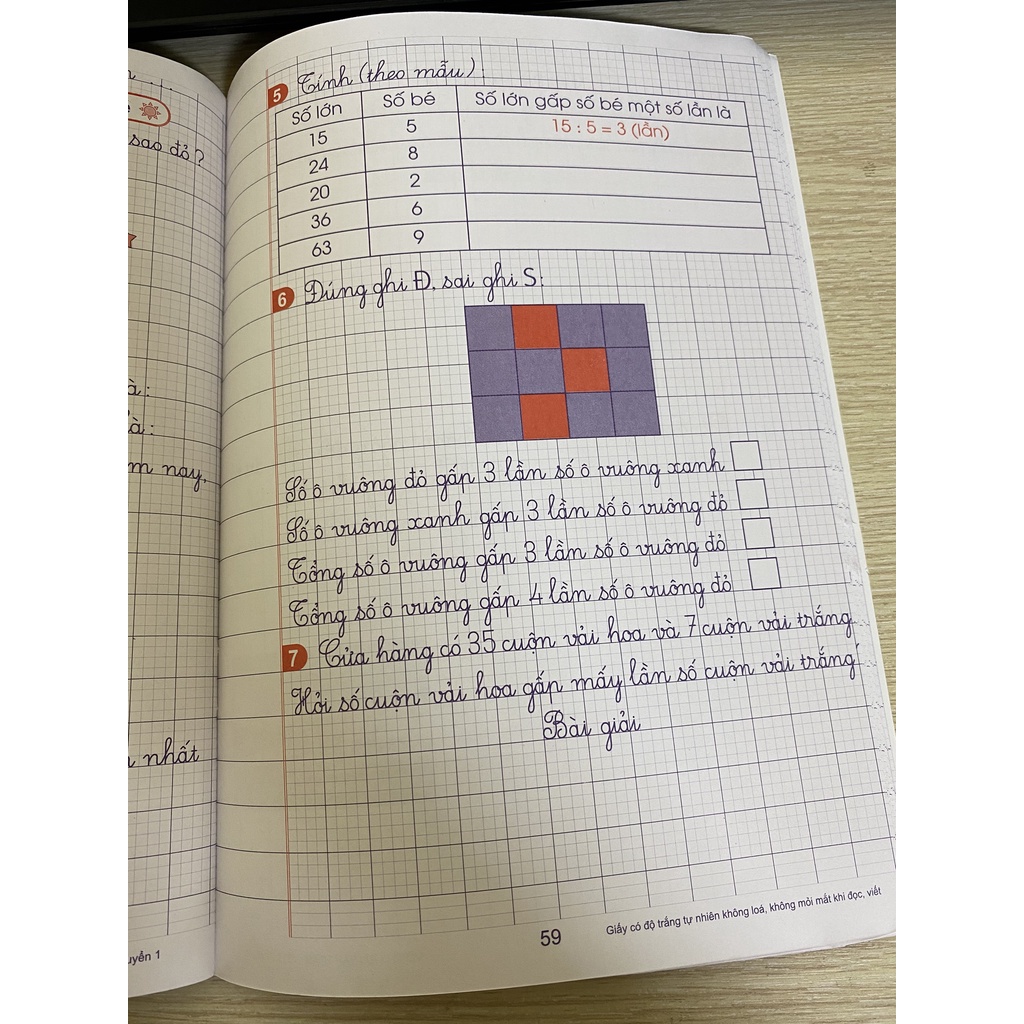 sao đỏ?
à:
à:
m nay,
nhất
uyển 1
5 Tính (theo mẫu)
Số lớn Số bé Số lớn gấp số bé một số lần là
15 5 15 : 5 = 3 (lần)
24 8
20 2
36 6
63 9
6 Đúng ghi Đ, sai ghi S:
Số ô vuông đỏ gấp 3 lần số ô vuông xanh
Số ô vuông xanh gấp 3 lần số ô vuông đỏ
Tổng số ô vuông gấp 3 lần số ô vuông đỏ
Tổng số ô vuông gấp 4 lần số ô vuông đỏ
7 Cửa hàng có 35 cuộn vải hoa và 7 cuộn vải trắng.
Hỏi số cuộn vải hoa gấp mấy lần số cuộn vải trắng
Bài giải
59
Giấy có độ trắng tự nhiên không loá, không mỏi mắt khi đọc, viết